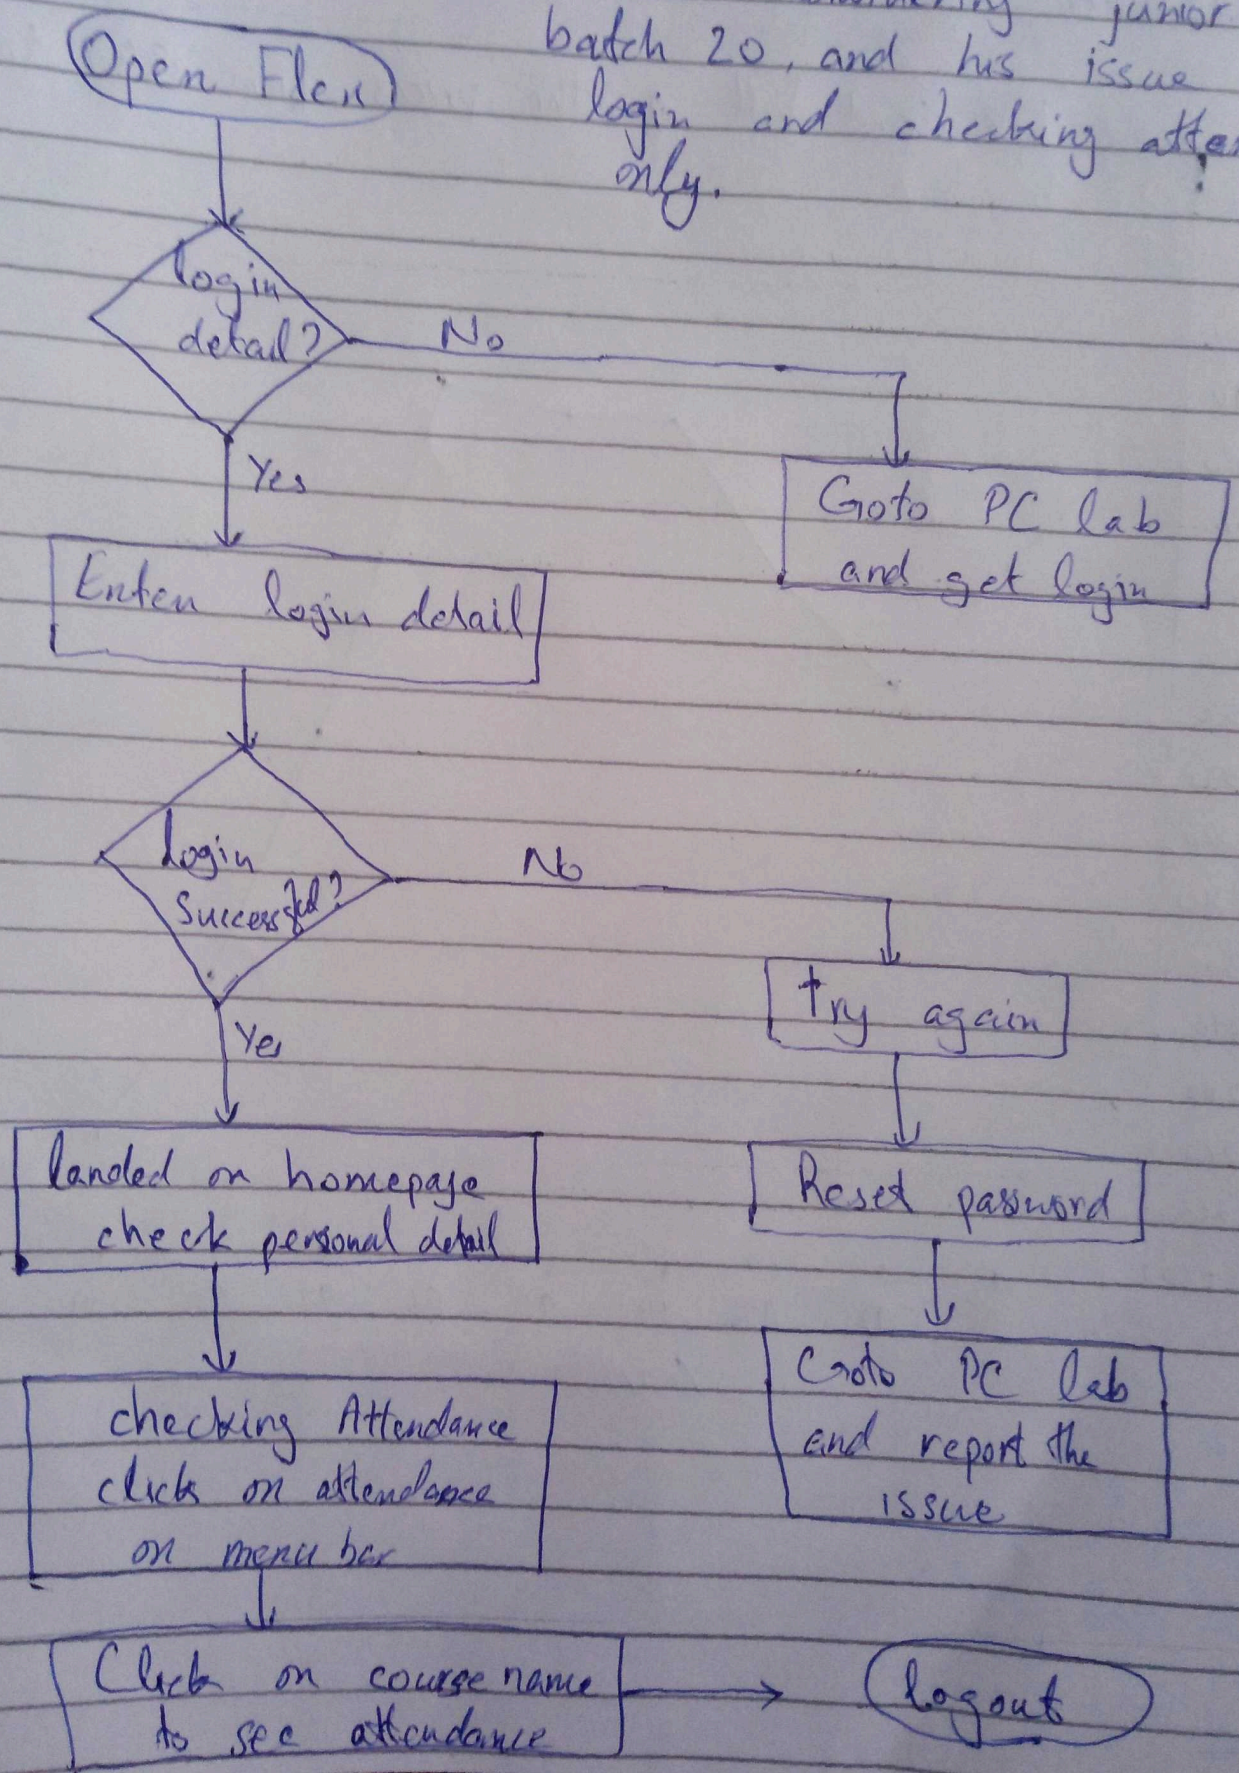 junior
batch 20, and his issue
login and checking
only.
Open Flex
login
detail?
No
Yes
Goto PC lab
and get login
Enter login detail
login
Successful?
No
Yes
try again
Reset password
Goto PC lab
and report the
issue
landed on homepage
check personal detail
checking Attendance
click on attendance
on menu bar
Click on course name
to see attendance
logout